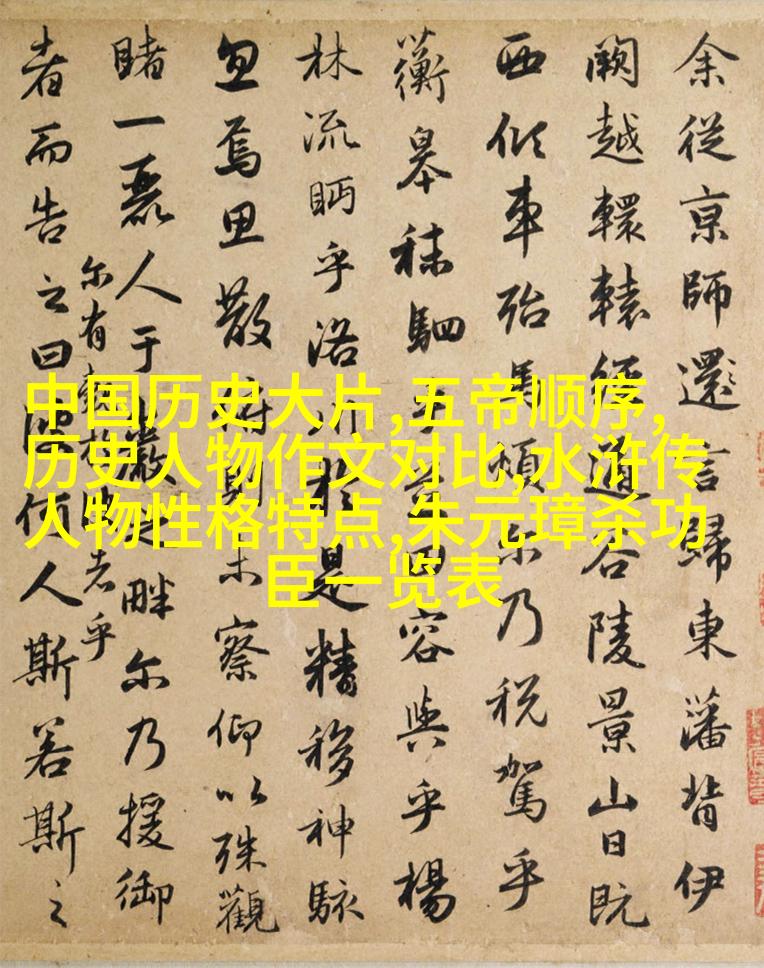 余從京師還言歸東藩背伊
闕越轘轅經通谷陵景山日既
西傾車殆馬煩尓乃税駕乎
蘅皋秣駟乎芝田容與乎楊
林流眄乎洛川於是精移神駭
忽焉思散俯則未察仰以殊觀
睹一麗人于巖之畔尓乃援御
尓有覿於彼者乎
者而告之曰彼何人斯若斯之
中国历史大片,五帝顺序,
历史人物作文对比,水浒传
人物性格特点,朱元璋杀功
臣一览表